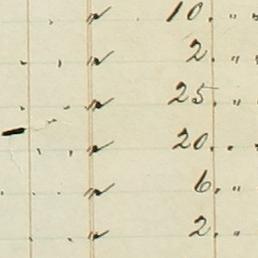 " 10. "
. . " 2. "
. . " 25. "
. . " 20. "
. . " 6. "
. . " 2. "